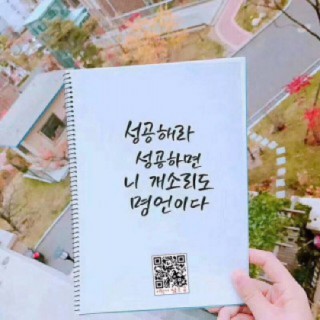 성공해라
성공하면
니 개소리도
명언이다